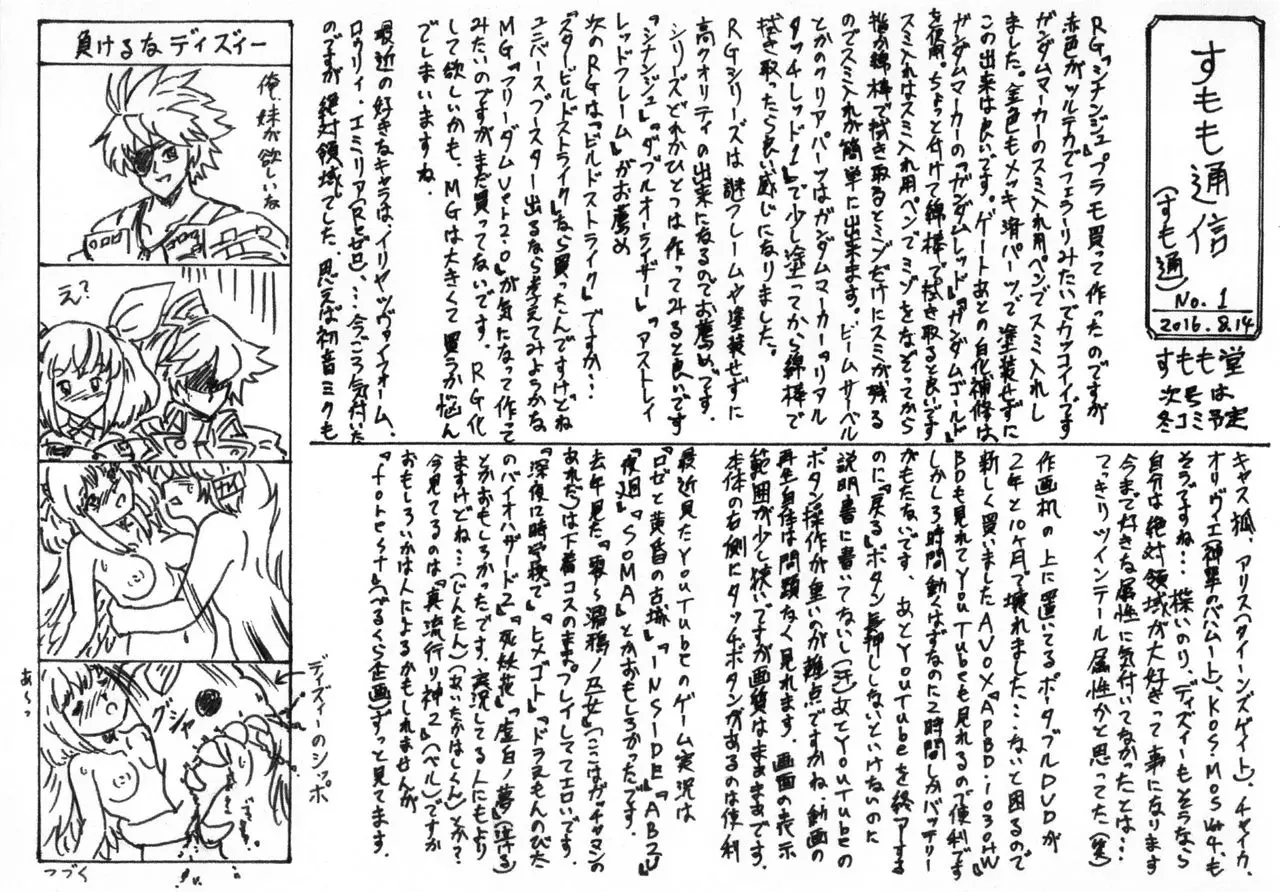 すもも通信
(すも通)
No.1
2016.8.14
すもも堂
次号は
冬コミ予定
RG『シナンジュ』プラモ買って作ったのですが
赤色がツルテカでフェラーリみたいでカッコイイです
ガンダムマーカーのスミ入れ用ペンでスミ入れし
ました。金色もメッキ済パーツで塗装せずに
この出来は良いです。ゲートあとの白化補修は、
ガンダムマーカーの『ガンダムレッド』『ガンダムゴールド』
を使用。ちょっと付けて綿棒で拭き取ると良いです
スミ入れはスミ入れ用ペンでミゾをなぞってから
指か綿棒で拭き取るとミゾだけにスミが残る
のでスミ入れが簡単に出来ます。ビームサーベル
とかのクリアパーツはガンダムマーカー『リアル
タッチレッド1』で少し塗ってから綿棒で
拭き取ったら良い感じになりました。
RGシリーズは謎フレームや塗装せずに
高クオリティの出来になるのでお薦めです。
シリーズどれかひとつは作ってみると良いです
『シナンジュ』『ダブルオーライザー』『アストレイ
レッドフレーム』がお薦め
次のRGは『ビルドストライク』ですか…
『スタービルドストライク』なら買ったんですけどね
ユニバースブースター出るなら考えてみようかな、
MG『フリーダムVer2.0』が気になって作って
みたいのですがまだ買ってないです。RG化
して欲しいかも、MGは大きくて買うか悩ん
でしまいますね。
最近の好きなキャラは、イリヤツヴァイフォーム、
ロウリィ、エミリア(Reゼロ)、…今ごろ気付いた
のですが絶対領域でした。思えば初音ミクも
キャス狐、アリス(クイーンズゲイト)、チャイカ、
オリヴィエ(神撃のバハムート)、KOS-MOS ver4.も
そうですね…操いのり、ディズィーもそうなら
自分は絶対領域が大好きって事になります
今まで好きな属性に気付いてなかったとは…
てっきりツインテール属性かと思ってた(笑)
作画机の上に置いてるポータブルDVDが
2年と10ヶ月で壊れました…ないと困るので
新しく買いましたAVOX『APBD-1030HW』
BDも見れてYouTubeも見れるので便利です
しかし3時間動くはずなのに2時間しかバッテリー
がもたないです、あとYouTubeを終了する
のに『戻る』ボタン長押ししないといけないのに
説明書に書いてないし(汗)あとYouTubeの
ボタン操作が重いのが難点ですかね、動画の
再生自体は問題なく見れます、画面の表示
範囲が少し狭いですが画質はまあまあです、
本体の右側にタッチボタンがあるのは便利
最近見たYouTubeのゲーム実況は
『ロゼと黄昏の古城』『INSIDE』『ABZU』
『夜廻』『SOMA』とかおもしろかったです。
去年見た『零〜濡鴉ノ巫女』(ここはガッチャマンの
あれだ)は下着コスのまま。プレイしててエロいです。
『深夜に時学校で』『ヒメゴト』『ドラえもんのびた
のバイオハザード2』『死妖花』『虚白ノ夢』(泣ける)
とかおもしろかったです。実況してる人にもより
ますけどね…(じんたん)(あいたかはしくん)とか?
今見てるのは『真流行り神2』(ベル)ですか
おもしろいかは人によるかもしれませんが
『forest』(べるくら企画)ずっと見てます。
負けるなディズィー
俺、妹が欲しいな
え?
グシャ
ディズィーのシッポ
あ〜っ
つづく